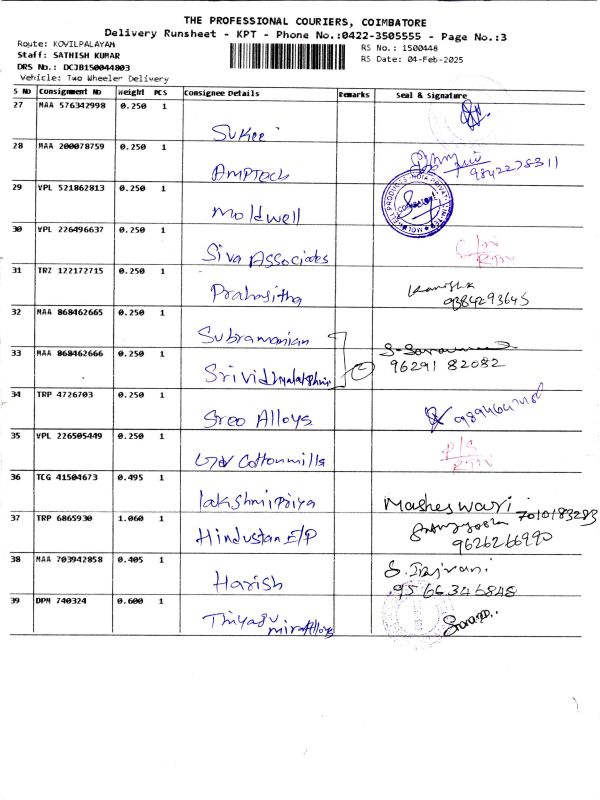 THE PROFESSIONAL COURIERS, COIMBATORE
Delivery Runsheet - KPT - Phone No.:0422-3505555 - Page No.:3
Route: KOVILPALAYAM
Staff: SATHISH KUMAR
DRS No.: DCJB150044803
Vehicle: Two Wheeler Delivery
RS No.: 1500448
RS Date: 04-Feb-2025
S NO Consignment No Weight PCS Consignee Details Remarks Seal & Signature
27 MAA 576342998 0.250 1
Sukee
28 MAA 200078759 0.250 1
AMPTech 9842278311
29 VPL 521862813 0.250 1
Moldwell
30 VPL 226496637 0.250 1
Siva Associates
31 TRZ 122172715 0.250 1
Prahasitha Kanishka
9384293645
32 MAA 868462665 0.250 1
Subramanian
33 MAA 868462666 0.250 1
Srividhyalakshmi 96291 82082
34 TRP 4726703 0.250 1
Sree Alloys
35 VPL 226505449 0.250 1
Cottonmills
36 TCG 41504673 0.495 1
lakshmiPriya Masheswari
7010183283
37 TRP 6865930 1.060 1
Hindustan E/P 9626266990
38 MAA 703942858 0.405 1
Harish
9566346848
39 DPM 740324 0.600 1
Thiyagu
mirAlloys